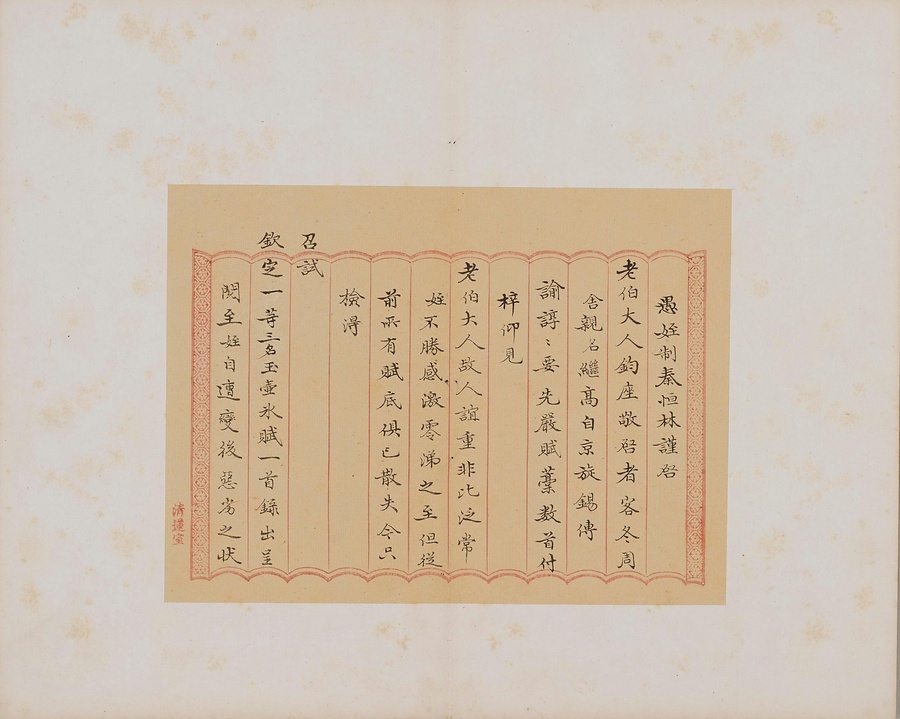 愚姪制秦恒林謹啓
老伯大人鈞座敬啓者客冬周
舍親名繼高自京旋錫傳
諭諄〻要先嚴賦藁数首付
梓仰見
老伯大人故人誼重非比泛常
姪不勝感激零涕之至但従
前所有賦底俱已散失今只
檢得
召試
欽定一等三名玉壺冰賦一首録出呈
閱至姪自遭變後惡劣之状